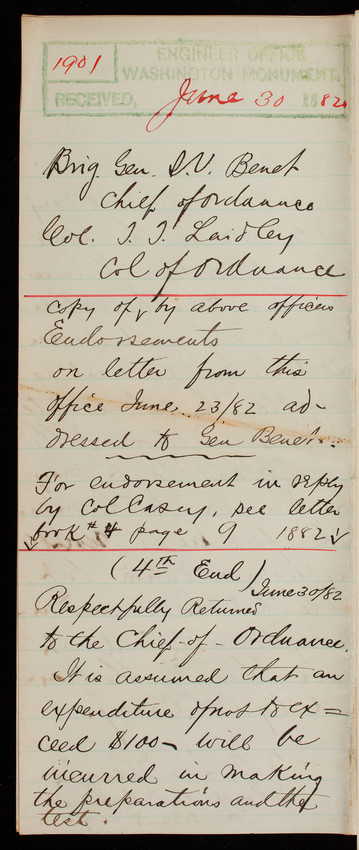 1901
ENGINEER OFFICE
WASHINGTON MONUMENT.
RECEIVED, June 30 1882.
Brig. Gen. S.V. Benet
Chief of Ordnance
Col. T. T. Laidley
Col of Ordnance
copy of ˬ by above officers
Endorsements
on letter from this
office June 23/82 ad-
dressed to Gen Benet.
For endorsement in reply
by Col Casey, see letter
book # 4 page 9 1882
(4th End)
June 30/82
Respectfully Returned
to the Chief of Ordnance.
It is assumed that an
expenditure of not to ex=
ceed $100- will be
incurred in making
the preparations and the
test.